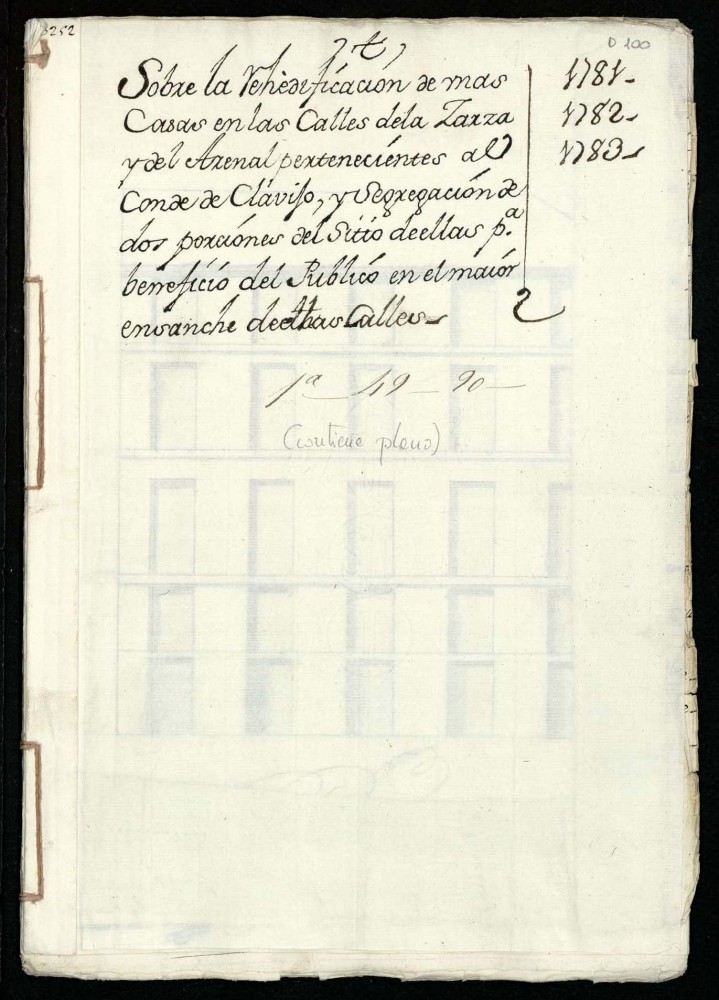 3252
D 100
, t ,
Sobre la Rehedificación de unas
Casas en las Calles de la Zarza
y del Arenal pertenecientes al
Conde de Clávijo, y Segregación de
dos porciónes del Sitio de ellas p.ª
beneficio del Publicó en el maiór
ensanche de dhas Calles
1781-
1782-
1783-
1ª - 49 - 90 -
(contiene plano)